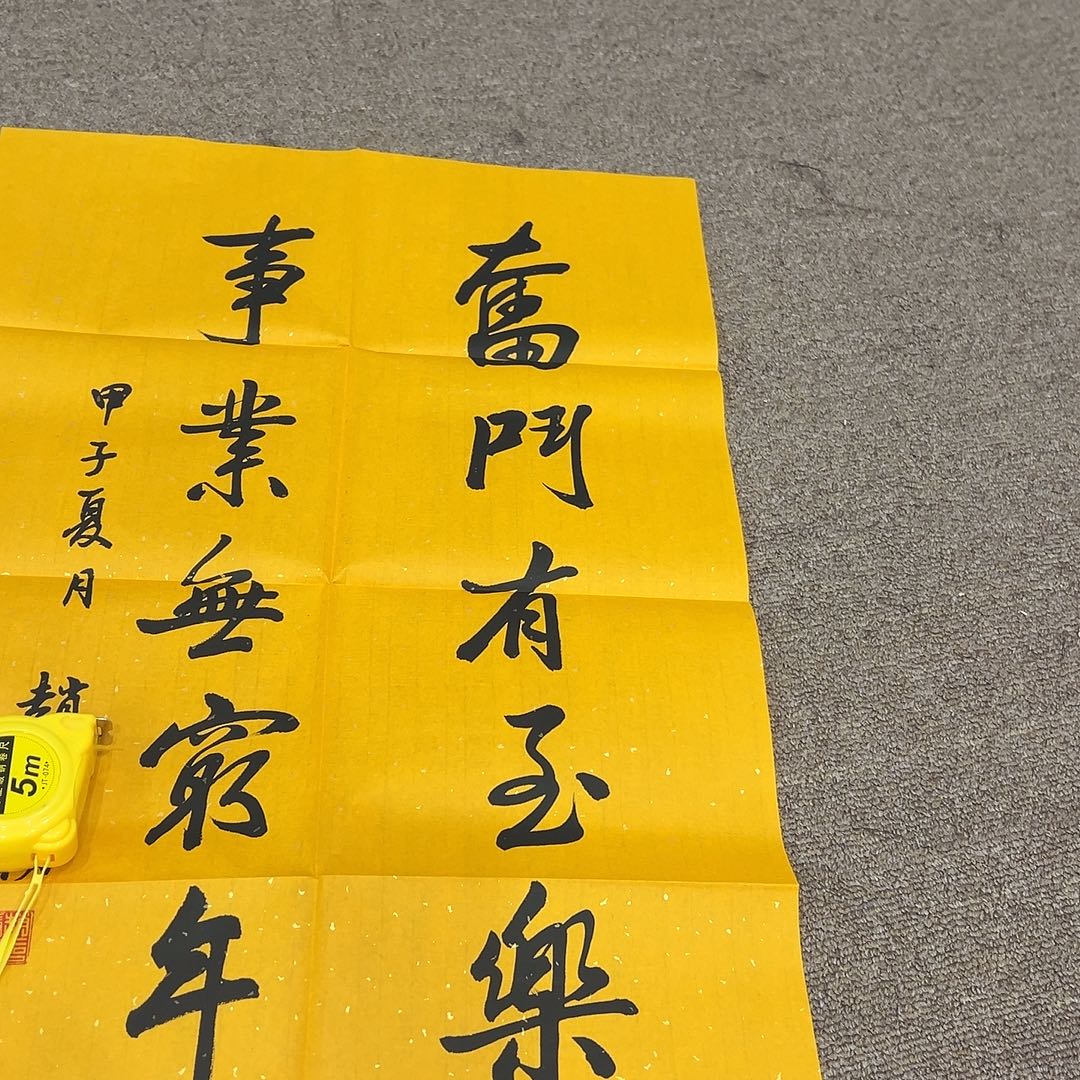 奮鬥有至樂
事業無窮年
甲子夏月
趙
5m
JT-074